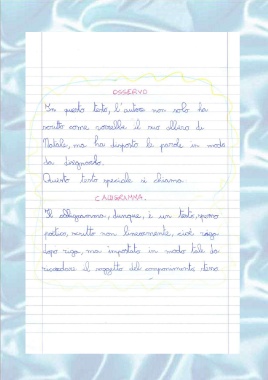 OSSERVO
In questo testo, l'autore non solo ha
scritto come vorrebbe il suo albero di
Natale, ma ha disposto le parole in modo
da disegnarlo.
Questo testo speciale si chiama:
CALIGRAMMA.
Il calligramma, dunque, è un testo, spesso
poetico, scritto non linearmente, cioè riga
dopo riga, ma impostato in modo tale da
ricordare il soggetto del componimento stesso